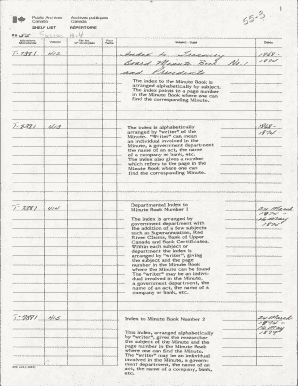 1
Public Archives Archives publiques
Canada Canada
SHELF LIST RÉPERTOIRE
55-3
RG 55 Series A-4
Dates
Index to Treasury 1868-
Board Minute Book No. 1
and Precedents
The index to the Minute Book is
arranged alphabetically by subject.
The index points to a page number
in the Minute Book where one can
find the corresponding Minute.
The index is alphabetically
arranged by "writer" of the
Minute. "Writer" can mean
an individual involved in the
Minute, a government department
the name of an act, the name
of a company or bank, etc.
The index also gives a number
which refers to the page in the
Minute Book where one can
find the corresponding Minute.
Departmental Index to
Minute Book Number 1
The index is arranged by
government department with
the addition of a few subjects
such as Superannuation, Red
River Claims, Bank of Upper
Canada and Bank Certificates.
Within each subject or
department the index is
arranged by "writer", giving
the subject and the page
number in the Minute Book
where the Minute can be found
The "writer" may be an indi-
vidual involved in the Minute,
a government department, the
name of an act, the name of a
company or bank, etc.
Index to Minute Book Number 2
This index, arranged alphabetically
by "writer", gives the researcher
the subject of the Minute and the
page number in the Minute Book
where one can find the Minute. The
"writer" may be an individual
involved in the Minute, a govern-
ment department, the name of an
act, the name of a company, bank,
etc.